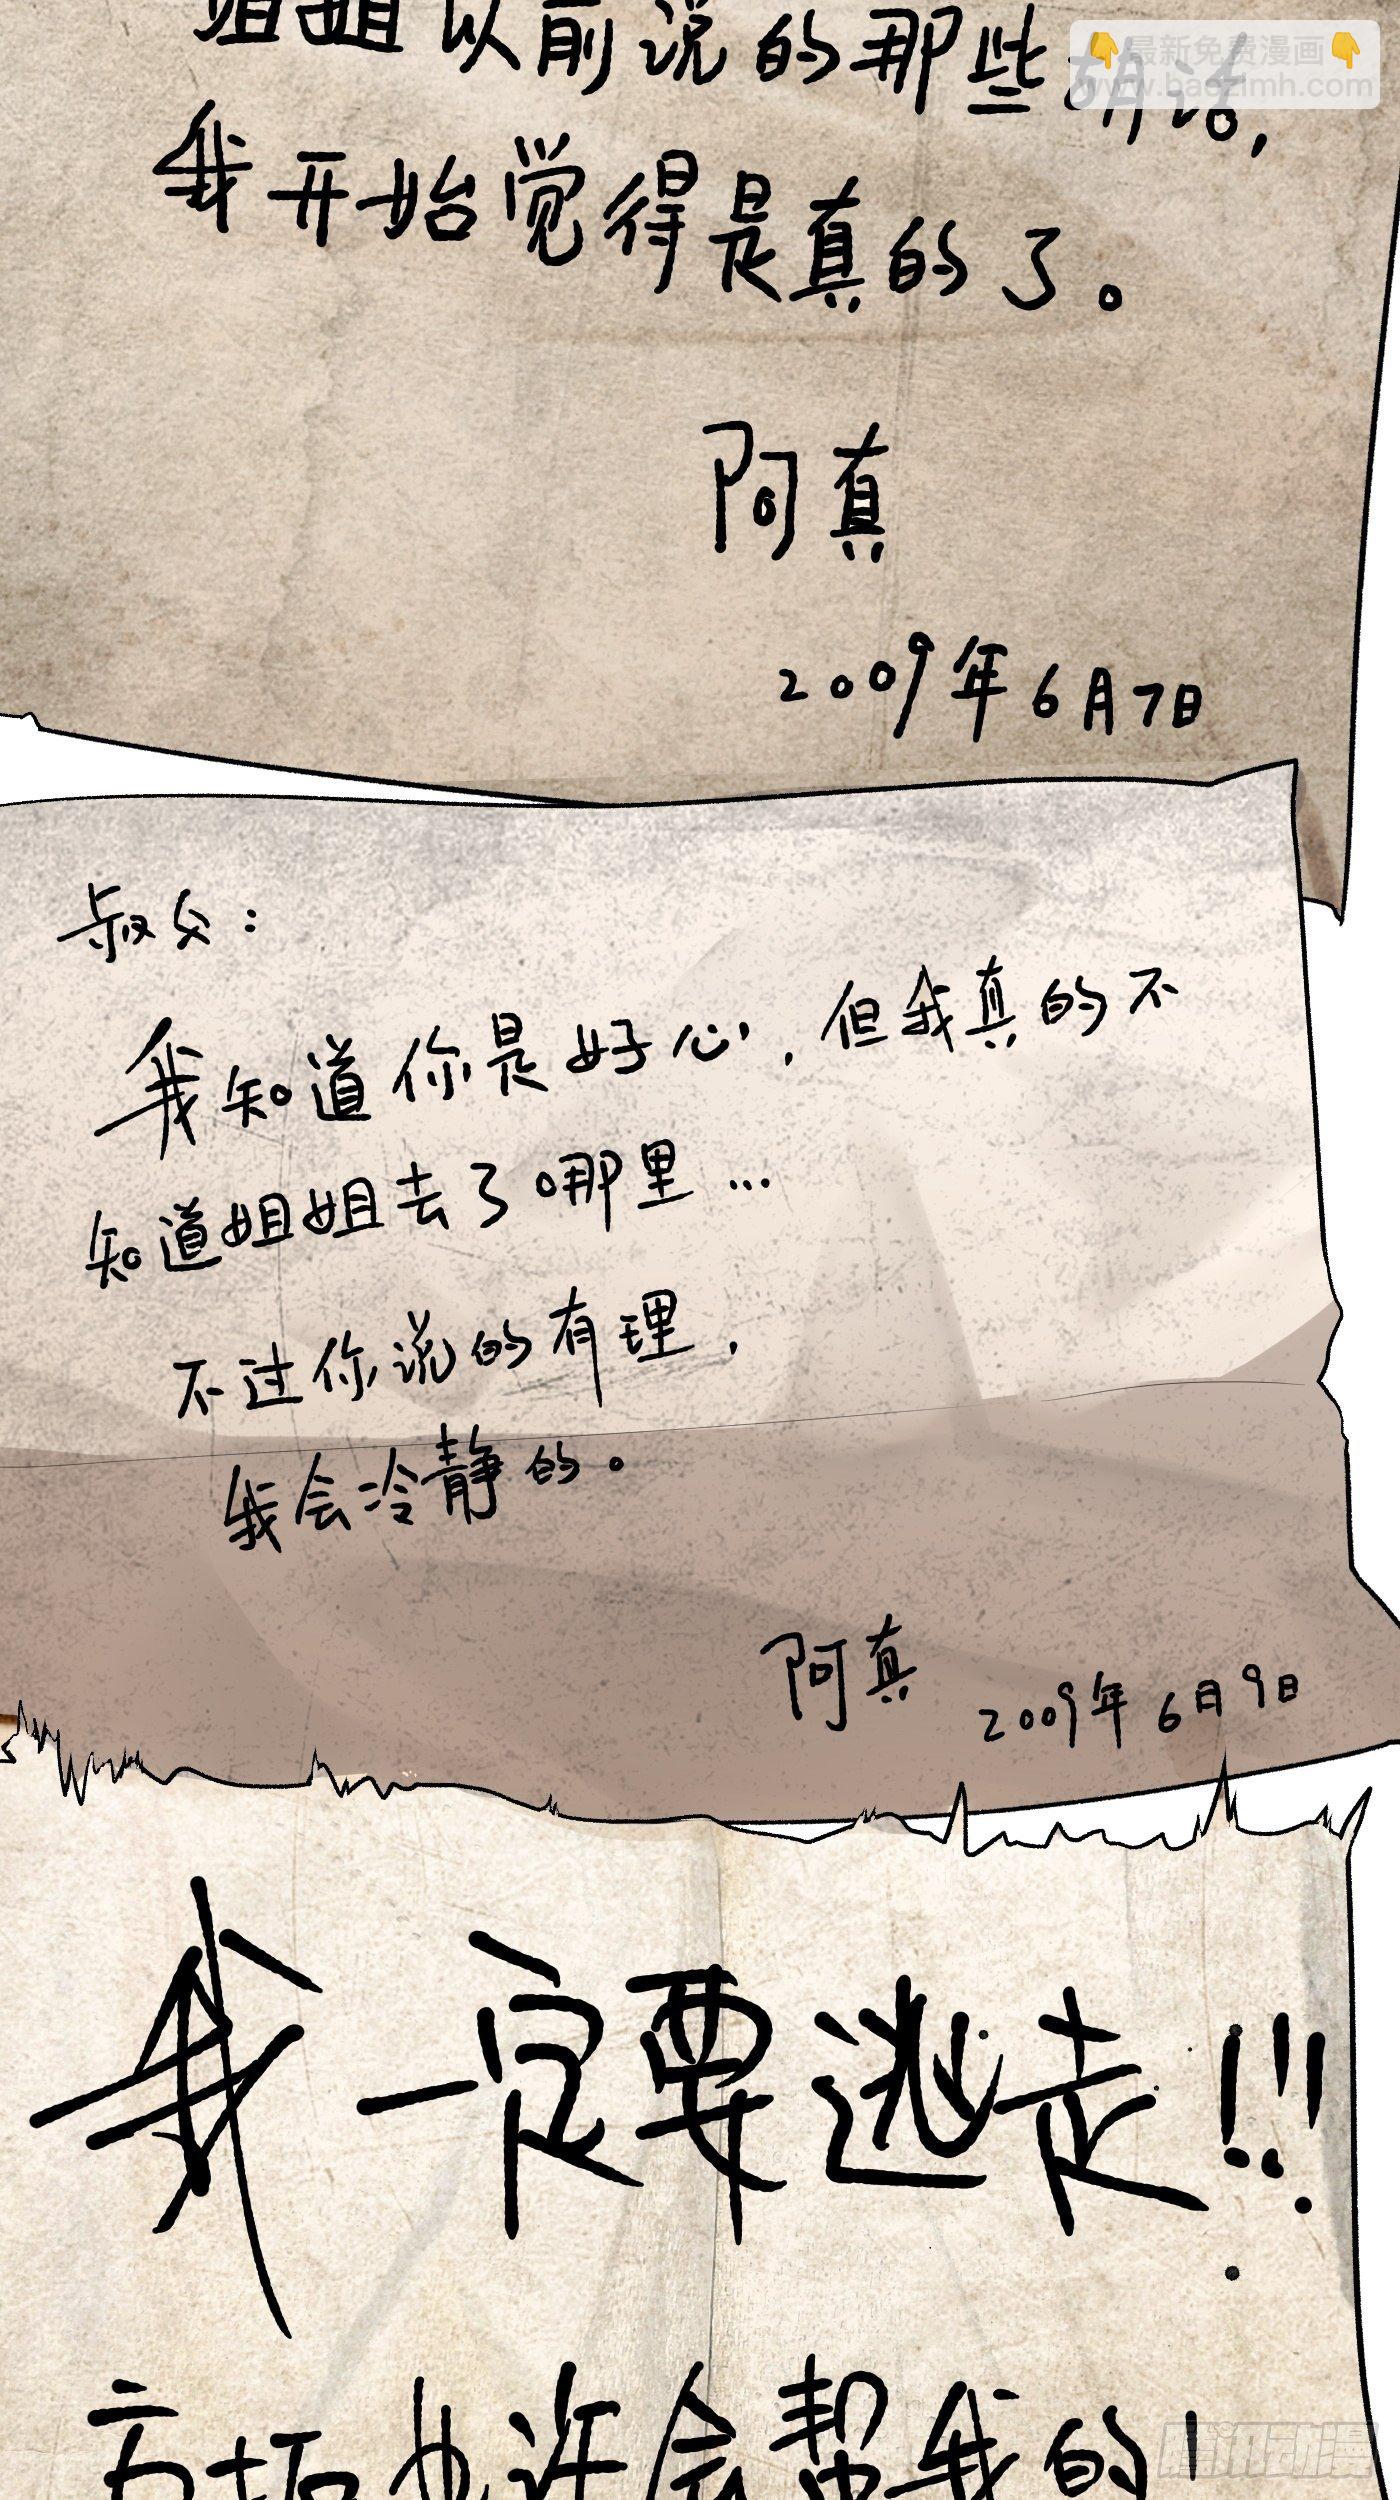 姐姐以前说的那些胡话，
👇最新免费漫画👇
www.baozimh.com
我开始觉得是真的了。
阿真
2009年6月7日
叔父：
我知道你是好心，但我真的不
知道姐姐去了哪里…
不过你说的有理，
我会冷静的。
阿真
2009年6月9日
我一定要逃走!!!
方拓也许会帮我的！
腾讯动漫